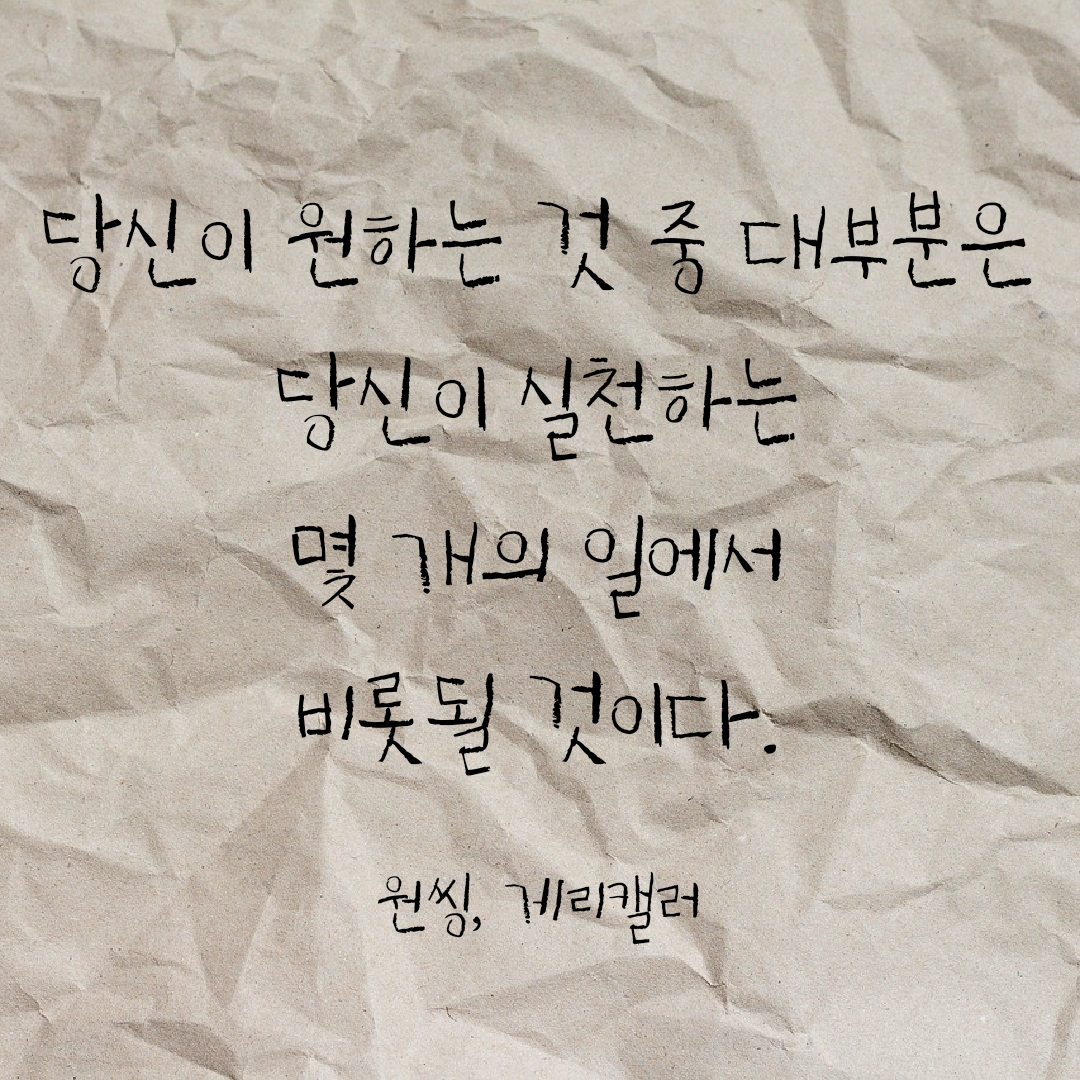 당신이 원하는 것 중 대부분은
당신이 실천하는
몇 개의 일에서
비롯될 것이다.
원씽, 게리캘러